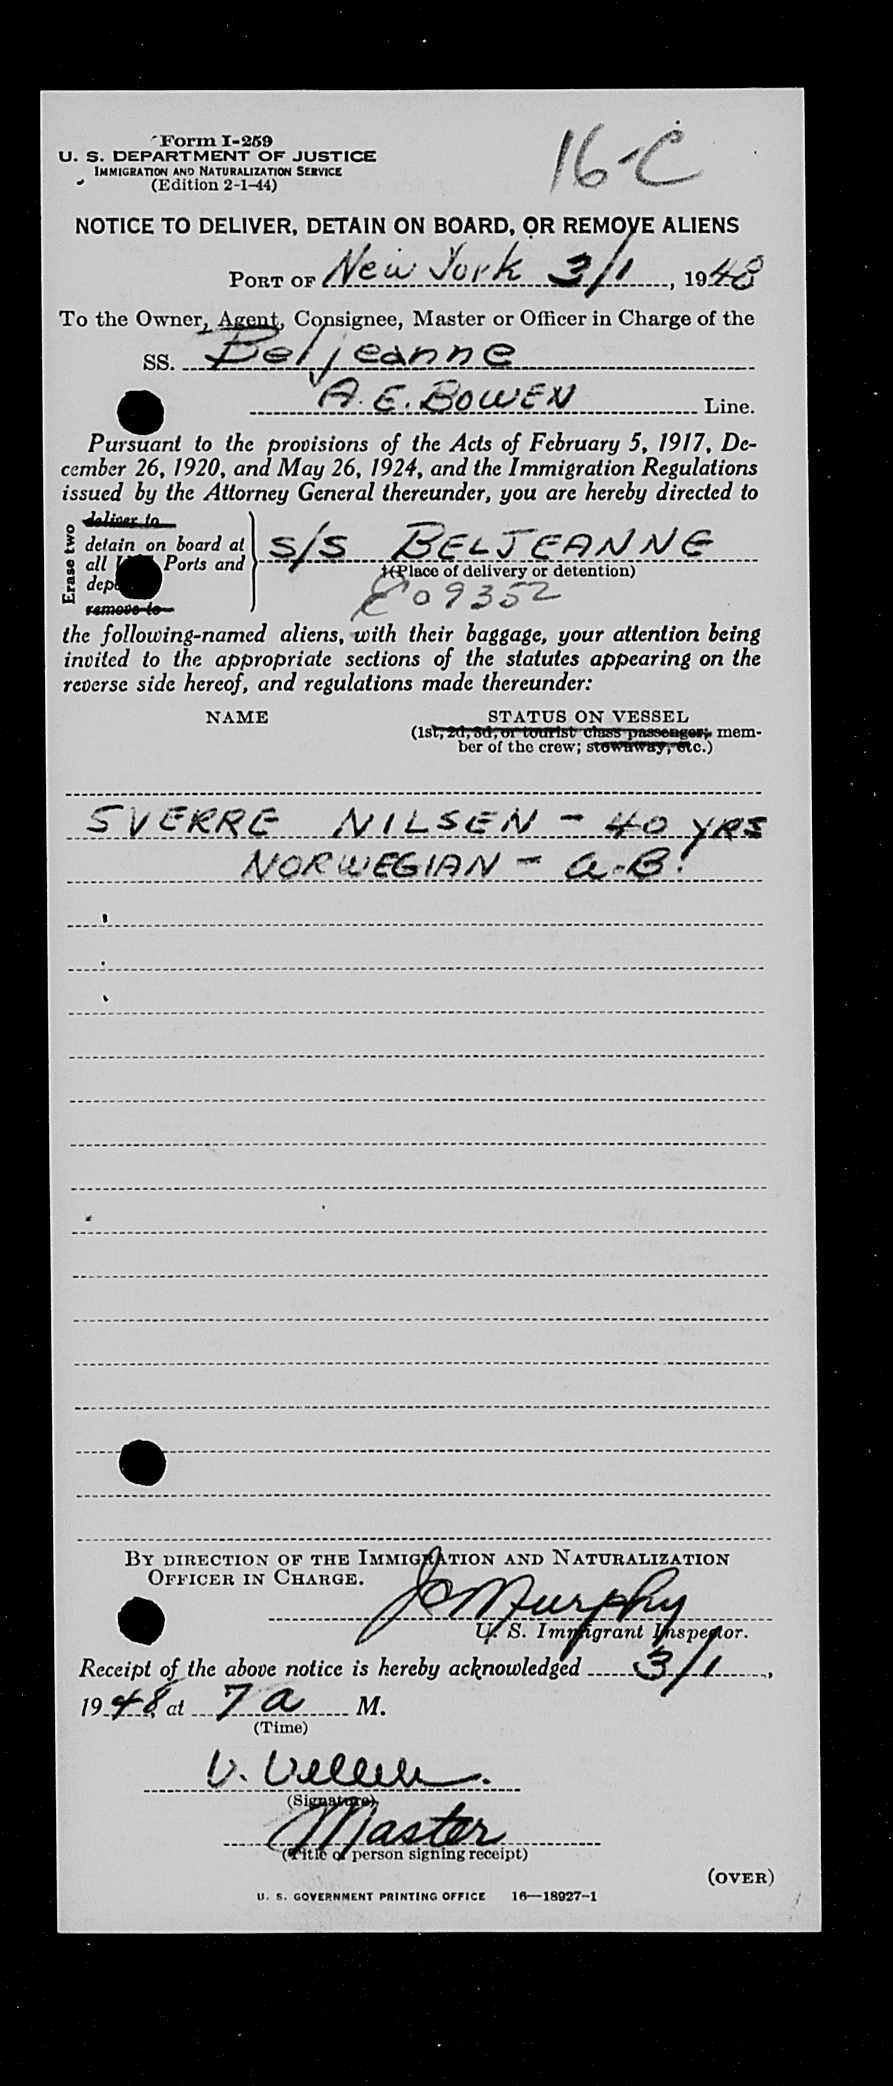 Form I-259
16-C
U. S. DEPARTMENT OF JUSTICE
IMMIGRATION AND NATURALIZATION SERVICE
(Edition 2-1-44)
NOTICE TO DELIVER, DETAIN ON BOARD, OR REMOVE ALIENS
PORT OF New York 3/1, 1948
To the Owner, Agent, Consignee, Master or Officer in Charge of the
SS. Beljeanne
A. E. BOWEN Line.
Pursuant to the provisions of the Acts of February 5, 1917, De-
cember 26, 1920, and May 26, 1924, and the Immigration Regulations
issued by the Attorney General thereunder, you are hereby directed to
Erase two
deliver to
detain on board at
all Ports and
remove to
S/S BELJEANNE
(Place of delivery or detention)
09352
the following-named aliens, with their baggage, your attention being
invited to the appropriate sections of the statutes appearing on the
reverse side hereof, and regulations made thereunder:
NAME STATUS ON VESSEL
(1st, 2d, 3d, or tourist class passenger; mem-
ber of the crew; stowaway, etc.)
SVERRE NILSEN - 40 YRS
NORWEGIAN - a.B.
BY DIRECTION OF THE IMMIGRATION AND NATURALIZATION
OFFICER IN CHARGE.
Murphy
U. S. Immigrant Inspector.
Receipt of the above notice is hereby acknowledged 3/1,
1948 at 7 a M.
(Time)
(Signature)
Master
(Title of person signing receipt)
(OVER)
U. S. GOVERNMENT PRINTING OFFICE 16—18927-1